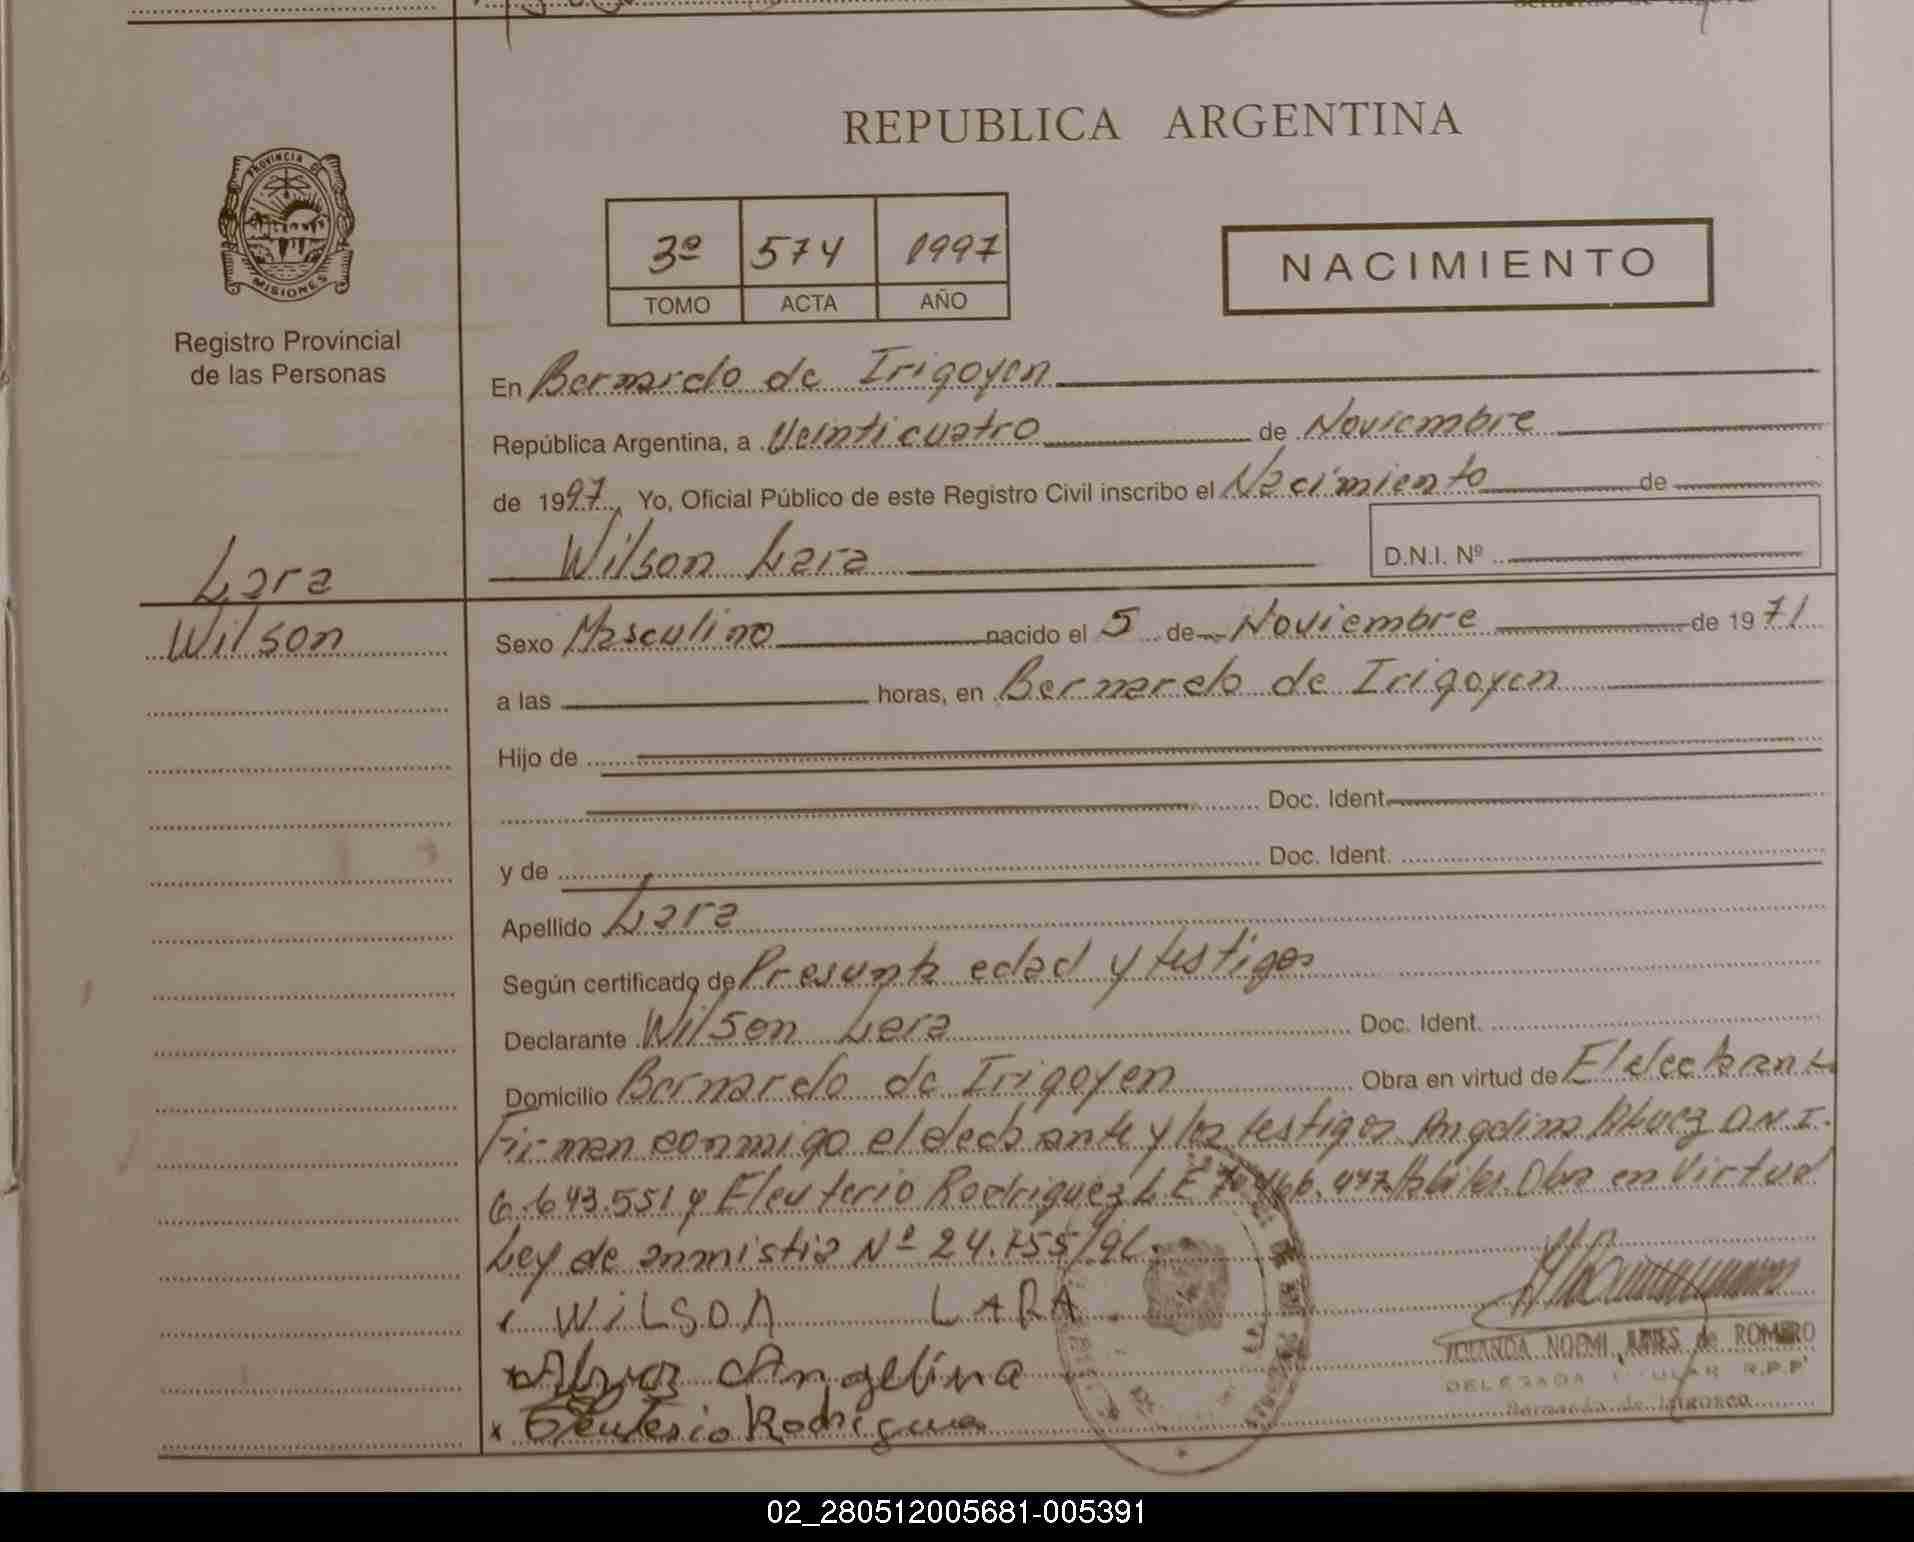 REPUBLICA ARGENTINA
PROVINCIA DE
MISIONES
Registro Provincial
de las Personas
3º 574 1997
TOMO ACTA AÑO
NACIMIENTO
En Bernardo de Irigoyen
República Argentina, a Veinticuatro de Noviembre
de 1997, Yo, Oficial Público de este Registro Civil inscribo el Nacimiento de
Wilson Lara D.N.I. Nº
Lara
Wilson
Sexo Masculino nacido el 5 de Noviembre de 1971
a las horas, en Bernardo de Irigoyen
Hijo de
Doc. Ident.
y de Doc. Ident.
Apellido Lara
Según certificado de Presunta edad y testigos
Declarante Wilson Lara Doc. Ident.
Domicilio Bernardo de Irigoyen Obra en virtud de El declarante
Firman conmigo el declarante y los testigos Angelina D.N.I.
6.643.551 y Eleuterio Rodriguez L E Obra en Virtud
Ley de anmistia Nº 24.755/96.
WiLSON LARA
Angelina
Eleuterio Rodrigues
YOLANDA NOEMI de ROMERO
DELEGADA TITULAR R.P.P
Bernardo de Irigoyen
02_280512005681-005391